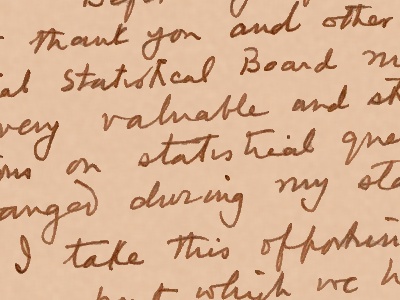 thank you and other
al Statistical Board m
very valuable and st
ns on statistical que
anged during my sta
I take this opportun
but which we h